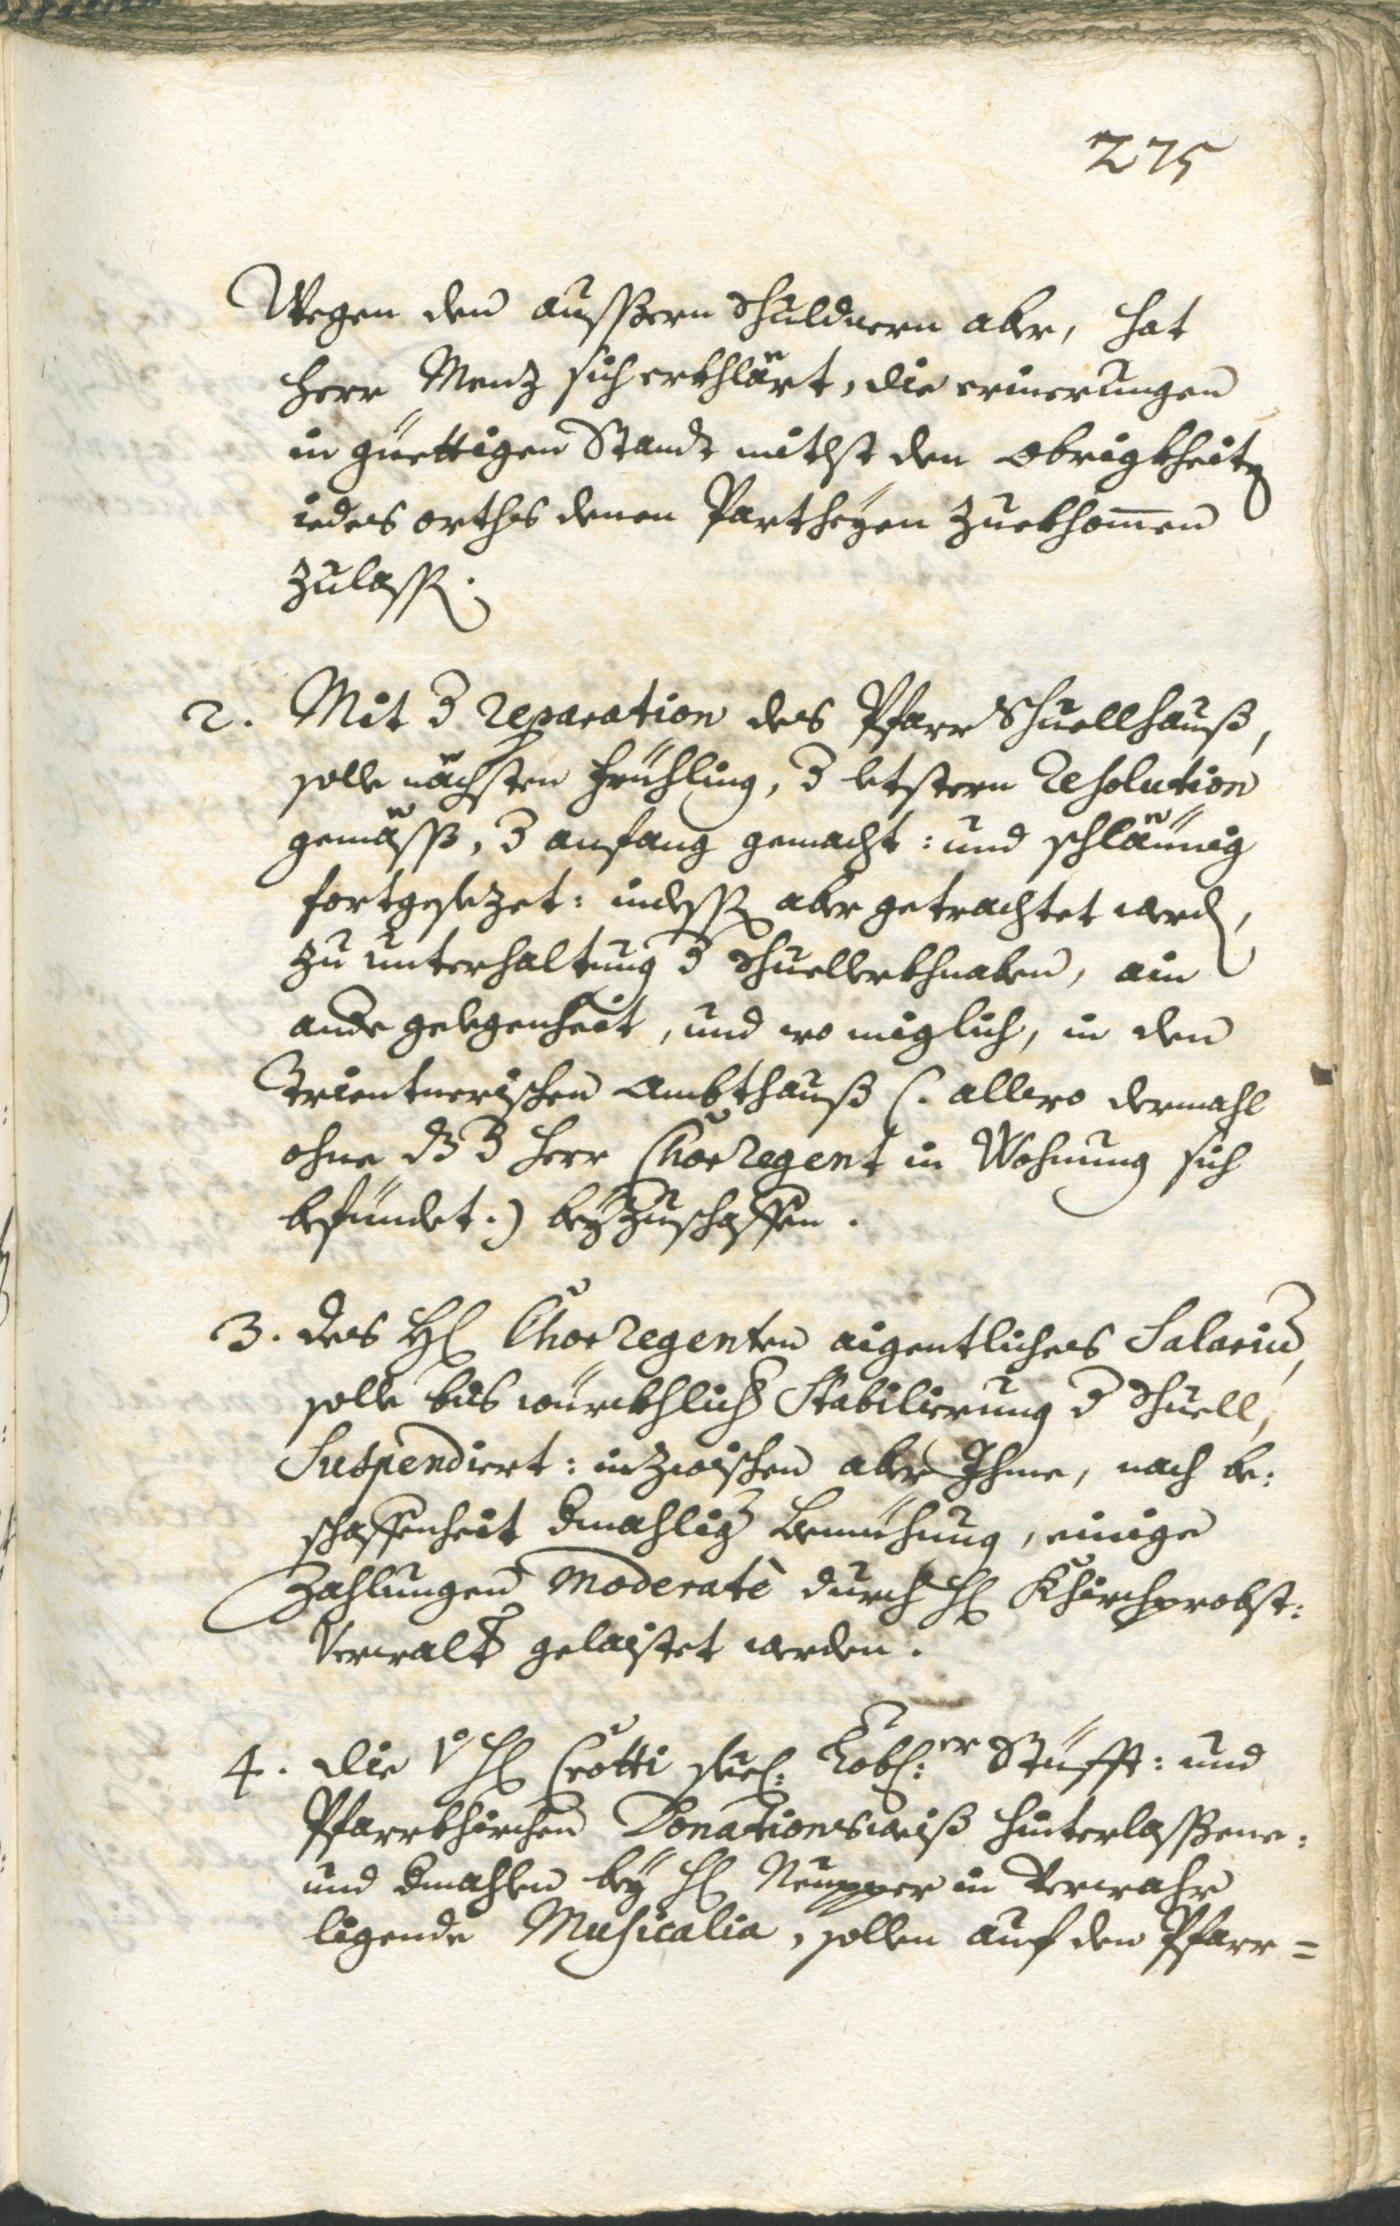 275
Wegen den aussern Schuldnern aber, hat
Herr Menz sich erkhlärt, die erinerungen
in güettigen Standt mitlst den Obrigkheiten
iedes orths denen Partheyen zuekhom̄en
zulassen.
2. Mit d reparation des Pfarr Schuellhauß,
solle nächsten Früehling, d letstern Resolution
gemäss, d anfang gemacht: und schläunig
fortgesezet: indessen aber getrachtet werden,
zu unterhaltung d Schuellerkhnaben, ain
andre gelegenheit, und wo miglich, in den
Trientnerischen Ambthauß (. allwo dermahl
ohne dz d Herr Chorregent in Wohnung sich
befündet.) beyzuschaffen.
3. des H: Chorregenten aigentliches Salariũ,
solle bis würckhlicher Stabilierung d Schuell,
Suspendiert: inzwischen aber Ihme, nach be:
schaffenheit dmahliger bemüehung, einige
Zahlungen moderatè durch H: Khirchprobst:
Verwalter gelaistet werden.
4. die v H: Crotti seel: Lobl:er Stüfft: und
Pfarrkhirchen Donationsweiß hinterlassene:
und dmahlen bey H: Neupper in Verwahr
ligende Musicalia, sollen auf den Pfarr=